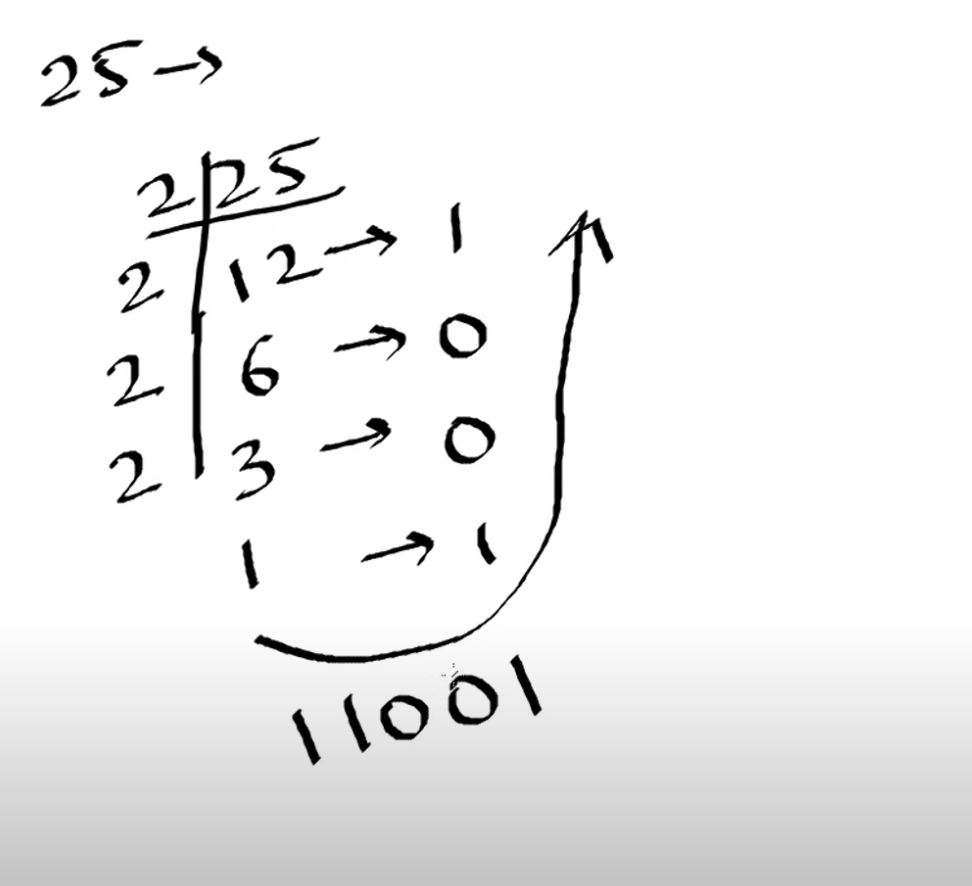 25→
2 | 25
2 | 12 → 1
2 | 6 → 0
2 | 3 → 0
1 → 1
11001